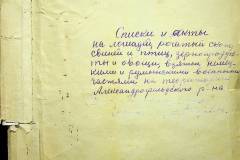 Списки и акты
на лошадей, рогатый скот,
свиней и птиц, зернопродук-
ты и овощи, взятые немец-
кими и румынскими воинскими
частями на территории
Александрфельдского р-на